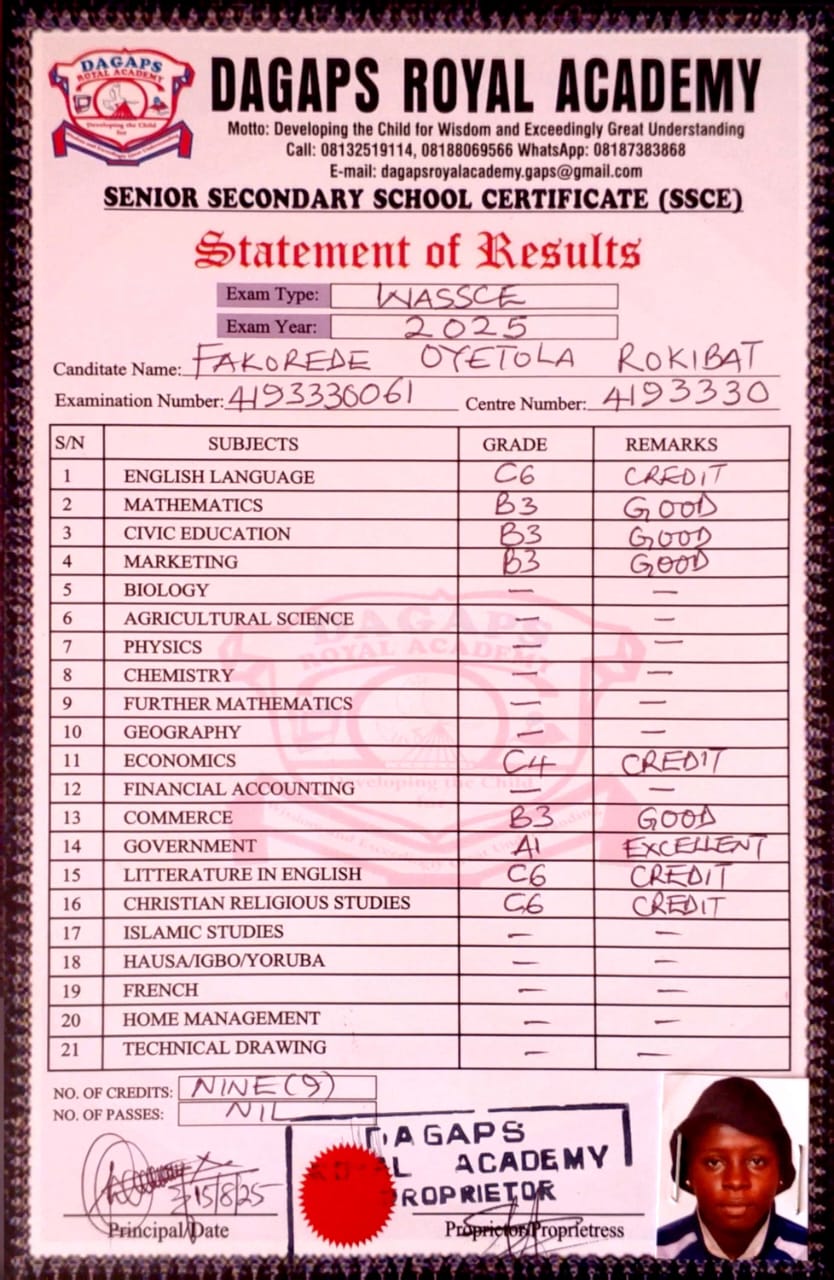 DAGAPS
ROYAL ACADEMY
Developing the Child
for
DAGAPS ROYAL ACADEMY
Motto: Developing the Child for Wisdom and Exceedingly Great Understanding
Call: 08132519114, 08188069566 WhatsApp: 08187383868
E-mail: dagapsroyalacademy.gaps@gmail.com
SENIOR SECONDARY SCHOOL CERTIFICATE (SSCE)
Statement of Results
Exam Type: WASSCE
Exam Year: 2025
Canditate Name: FAKOREDE OYETOLA ROKIBAT
Examination Number: 4193330061 Centre Number: 4193330
S/N SUBJECTS GRADE REMARKS
1 ENGLISH LANGUAGE C6 CREDIT
2 MATHEMATICS B3 GOOD
3 CIVIC EDUCATION B3 GOOD
4 MARKETING B3 GOOD
5 BIOLOGY — —
6 AGRICULTURAL SCIENCE — —
7 PHYSICS — —
8 CHEMISTRY — —
9 FURTHER MATHEMATICS — —
10 GEOGRAPHY — —
11 ECONOMICS C4 CREDIT
12 FINANCIAL ACCOUNTING — —
13 COMMERCE B3 GOOD
14 GOVERNMENT A1 EXCELLENT
15 LITTERATURE IN ENGLISH C6 CREDIT
16 CHRISTIAN RELIGIOUS STUDIES C6 CREDIT
17 ISLAMIC STUDIES — —
18 HAUSA/IGBO/YORUBA — —
19 FRENCH — —
20 HOME MANAGEMENT — —
21 TECHNICAL DRAWING — —
NO. OF CREDITS: NINE (9)
NO. OF PASSES: NIL
DAGAPS
ACADEMY
PROPRIETOR
15/8/25
Principal/Date Proprietor/Proprietress